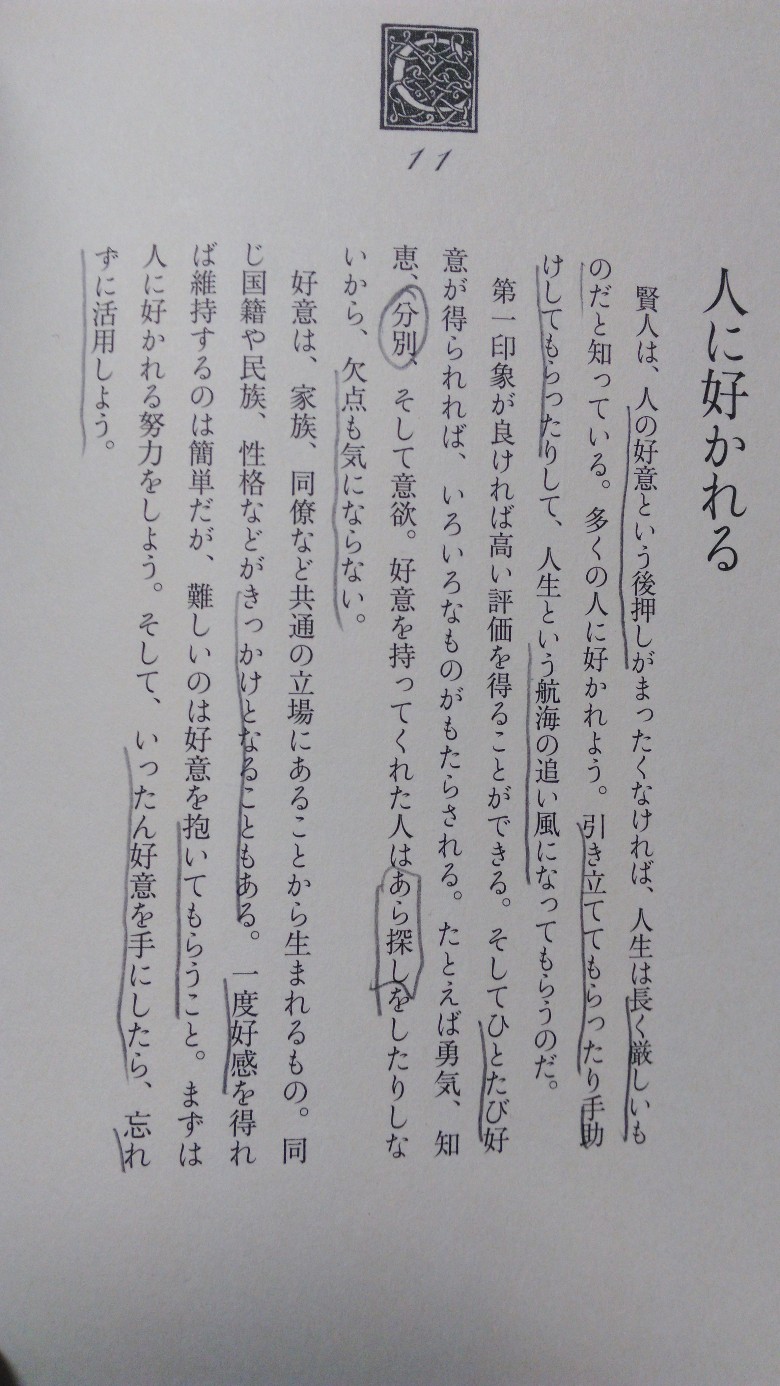 11
人に好かれる
賢人は、人の好意という後押しがまったくなければ、人生は長く厳しいも
のだと知っている。多くの人に好かれよう。引き立ててもらったり手助
けしてもらったりして、人生という航海の追い風になってもらうのだ。
第一印象が良ければ高い評価を得ることができる。そしてひとたび好
意が得られれば、いろいろなものがもたらされる。たとえば勇気、知
恵、分別、そして意欲。好意を持ってくれた人はあら探しをしたりしな
いから、欠点も気にならない。
好意は、家族、同僚など共通の立場にあることから生まれるもの。同
じ国籍や民族、性格などがきっかけとなることもある。一度好感を得れ
ば維持するのは簡単だが、難しいのは好意を抱いてもらうこと。まずは
人に好かれる努力をしよう。そして、いったん好意を手にしたら、忘れ
ずに活用しよう。